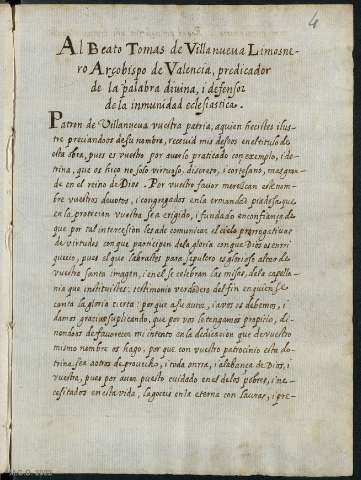 4
Al Beato Tomas de Villanueva Limosne-
ro Arçobispo de Valencia, predicador
de la palabra divina, i defensor
de la inmunidad eclesiastica.
Patron de Villanueva vuestra patria, aquien hecistes ilus
tre preciandoos de su nombre, recevid mis deseos en el titulo de
esta obra, pues es vuestro por averlo praticado con exemplo, i do
trina, que os hiço no solo virtuoso, discreto, i cortesano, mas gran
de en el reino de Dios. Por vuestro favor merezcan este nom
bre vuestros devotos, i congregados en la ermandad piadosa que
en la protecion vuestra se a erigido, i fundado en confiança de
que por tal intercession les a de comunicar el cielo prerrogativas
de virtudes con que participen de la gloria con que Dios os enrri
quecio, pues el que labrastes para sepulcro es glorioso altar de
vuestra santa imagen, i en el se celebran las misas, de la capella
nia que instituistes; testimonio verdadero del fin en quien se
canta la gloria cierta: porque a su autor, i a vos os debemos, i
damos gracias suplicando, que por vos lo tengamos propicio, di
nandoos de favorecer mi intento en la dedicacion que de vuestro
mismo nombre os hago, por que con vuestro patrocinio esta do
trina sea a otros de provecho, i toda onrra, i alabança de Dios, i
vuestra, pues por aver puesto cuidado en el de los pobres, i ne
cesitados en esta vida, la goceis en la eterna con lauros, i pre-